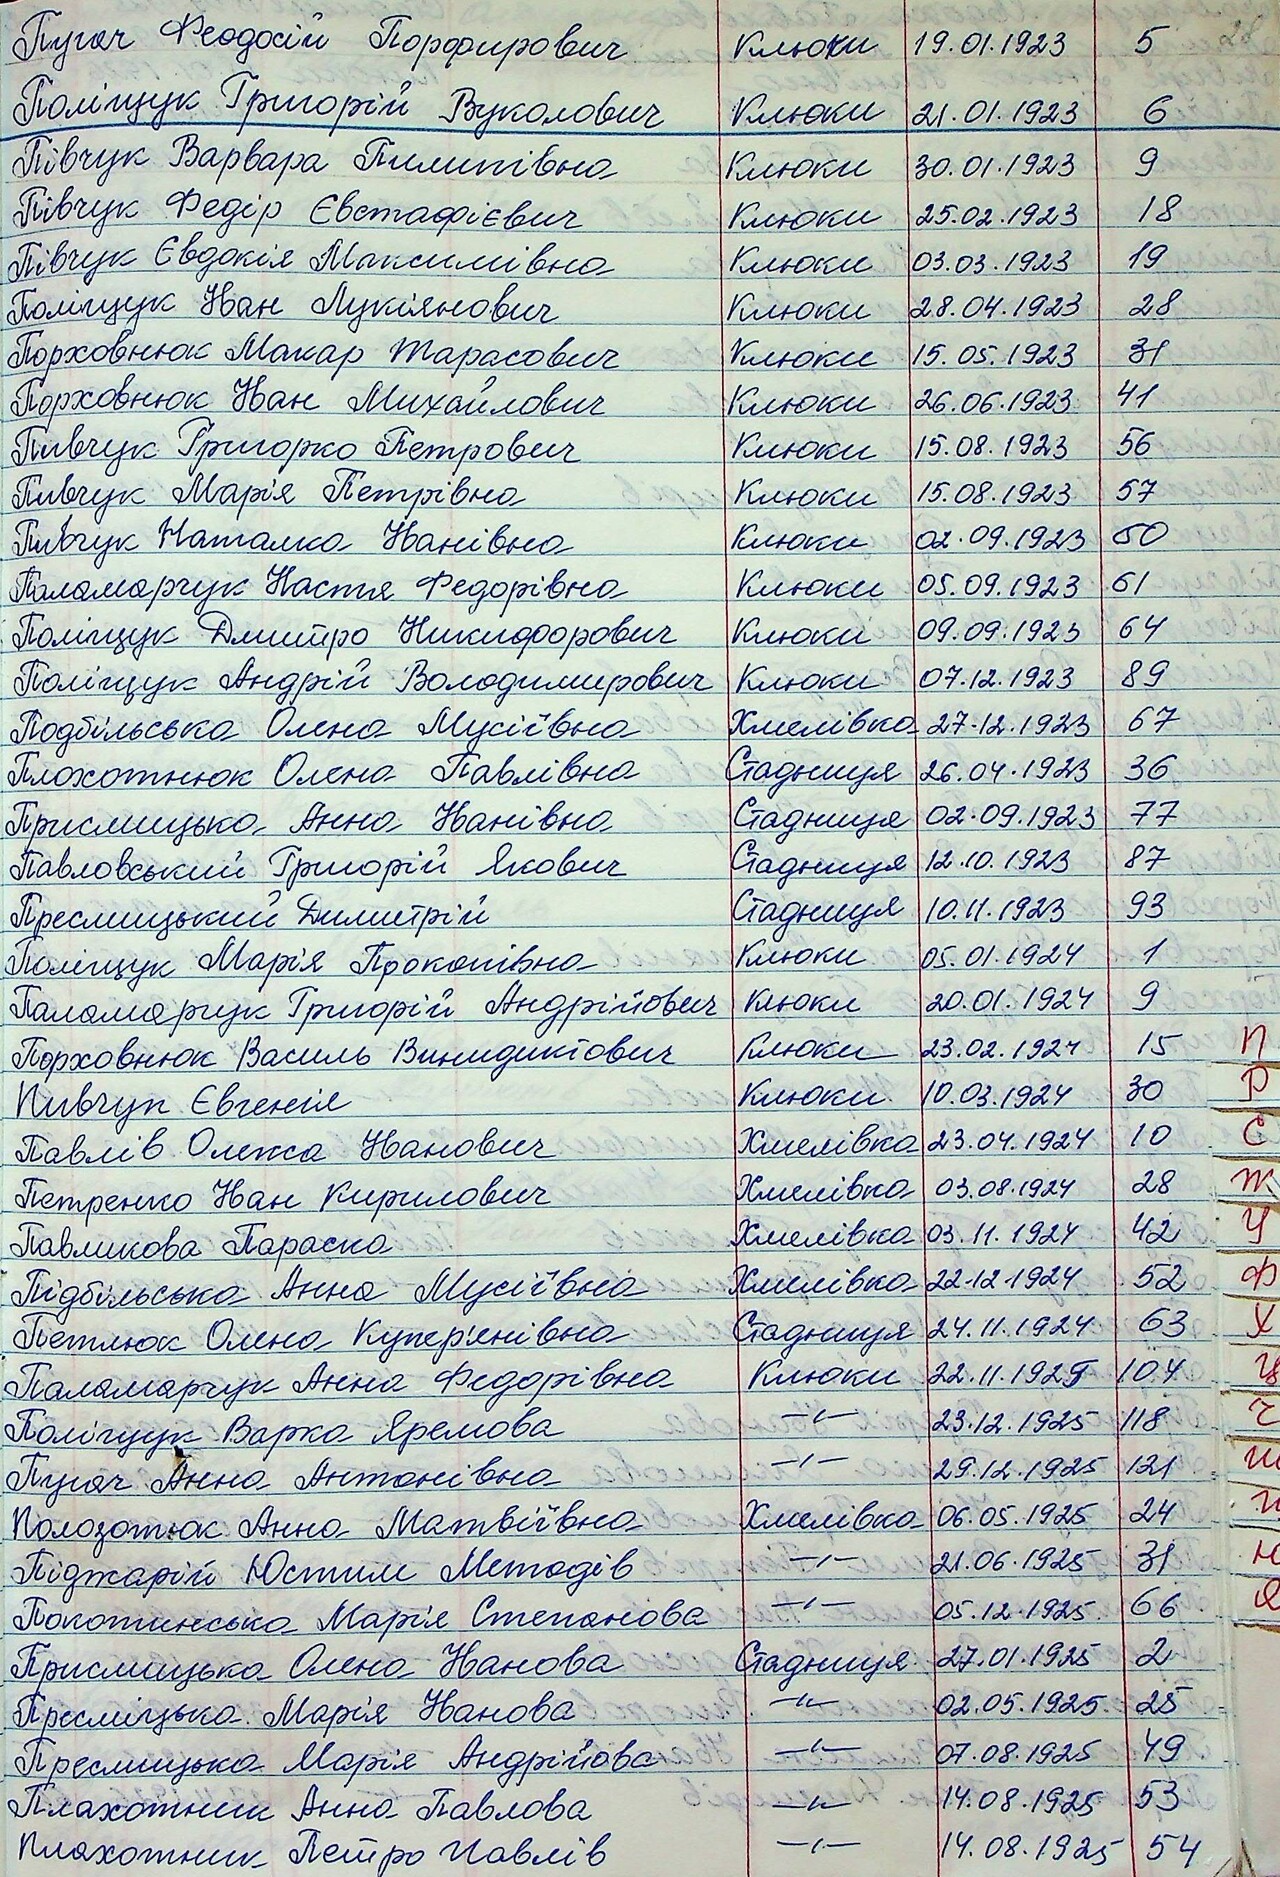 Пугач Феодосій Порфирович Клюки 19.01.1923 5
Поліщук Григорій Вуколович Клюки 21.01.1923 6
Півчук Варвара Пилипівна Клюки 30.01.1923 9
Півчук Федір Євстафієвич Клюки 25.02.1923 18
Півчук Євдокія Максимівна Клюки 03.03.1923 19
Поліщук Іван Лукіянович Клюки 28.04.1923 28
Порховнюк Макар Тарасович Клюки 15.05.1923 31
Порховнюк Іван Михайлович Клюки 26.06.1923 41
Пивчук Григорко Петрович Клюки 15.08.1923 56
Пивчук Марія Петрівна Клюки 15.08.1923 57
Пивчук Наталка Іванівна Клюки 02.09.1923 60
Паламарчук Настя Федорівна Клюки 05.09.1923 61
Поліщук Дмитро Никифорович Клюки 09.09.1923 64
Поліщук Андрій Володимирович Клюки 07.12.1923 89
Подбільська Олена Мусіївна Хмелівка 27.12.1923 67
Плохотнюк Олена Павлівна Стадниця 26.04.1923 36
Присмицька Анна Іванівна Стадниця 02.09.1923 77
Павловський Григорій Якович Стадниця 12.10.1923 87
Пресмицький Димитрій Стадниця 10.11.1923 93
Поліщук Марія Прокопівна Клюки 05.01.1924 1
Паламарчук Григорій Андрійович Клюки 20.01.1924 9
Порховнюк Василь Винидиктович Клюки 23.02.1924 15 П
Пивчук Євгенія Клюки 10.03.1924 30 Р
Павлів Олекса Іванович Хмелівка 23.04.1924 10 С
Петренко Іван Кирилович Хмелівка 03.08.1924 28 Т
Павликова Параска Хмелівка 03.11.1924 42 У
Підбільська Анна Мусіївна Хмелівка 22.12.1924 52 Ф
Петлюк Олена Купер'енівна Стадниця 24.11.1924 63 Х
Паламарчук Анна Федорівна Клюки 22.11.1925 104 Ц
Поліщук Варка Яремова —"— 23.12.1925 118 Ч
Пугач Анна Антонівна —"— 29.12.1925 121 Ш
Полозотюк Анна Матвіївна Хмелівка 06.05.1925 24
Піджарій Юстим Методів —"— 21.06.1925 31 Ю
Покотинська Марія Степанова —"— 05.12.1925 66 Я
Присмицька Олена Іванова Стадниця 27.01.1925 2
Пресміцька Марія Іванова —"— 02.05.1925 25
Пресмицька Марія Андрійова —"— 07.08.1925 49
Плахотник Анна Павлова —"— 14.08.1925 53
Плахотник Петро Павлів —"— 14.08.1925 54